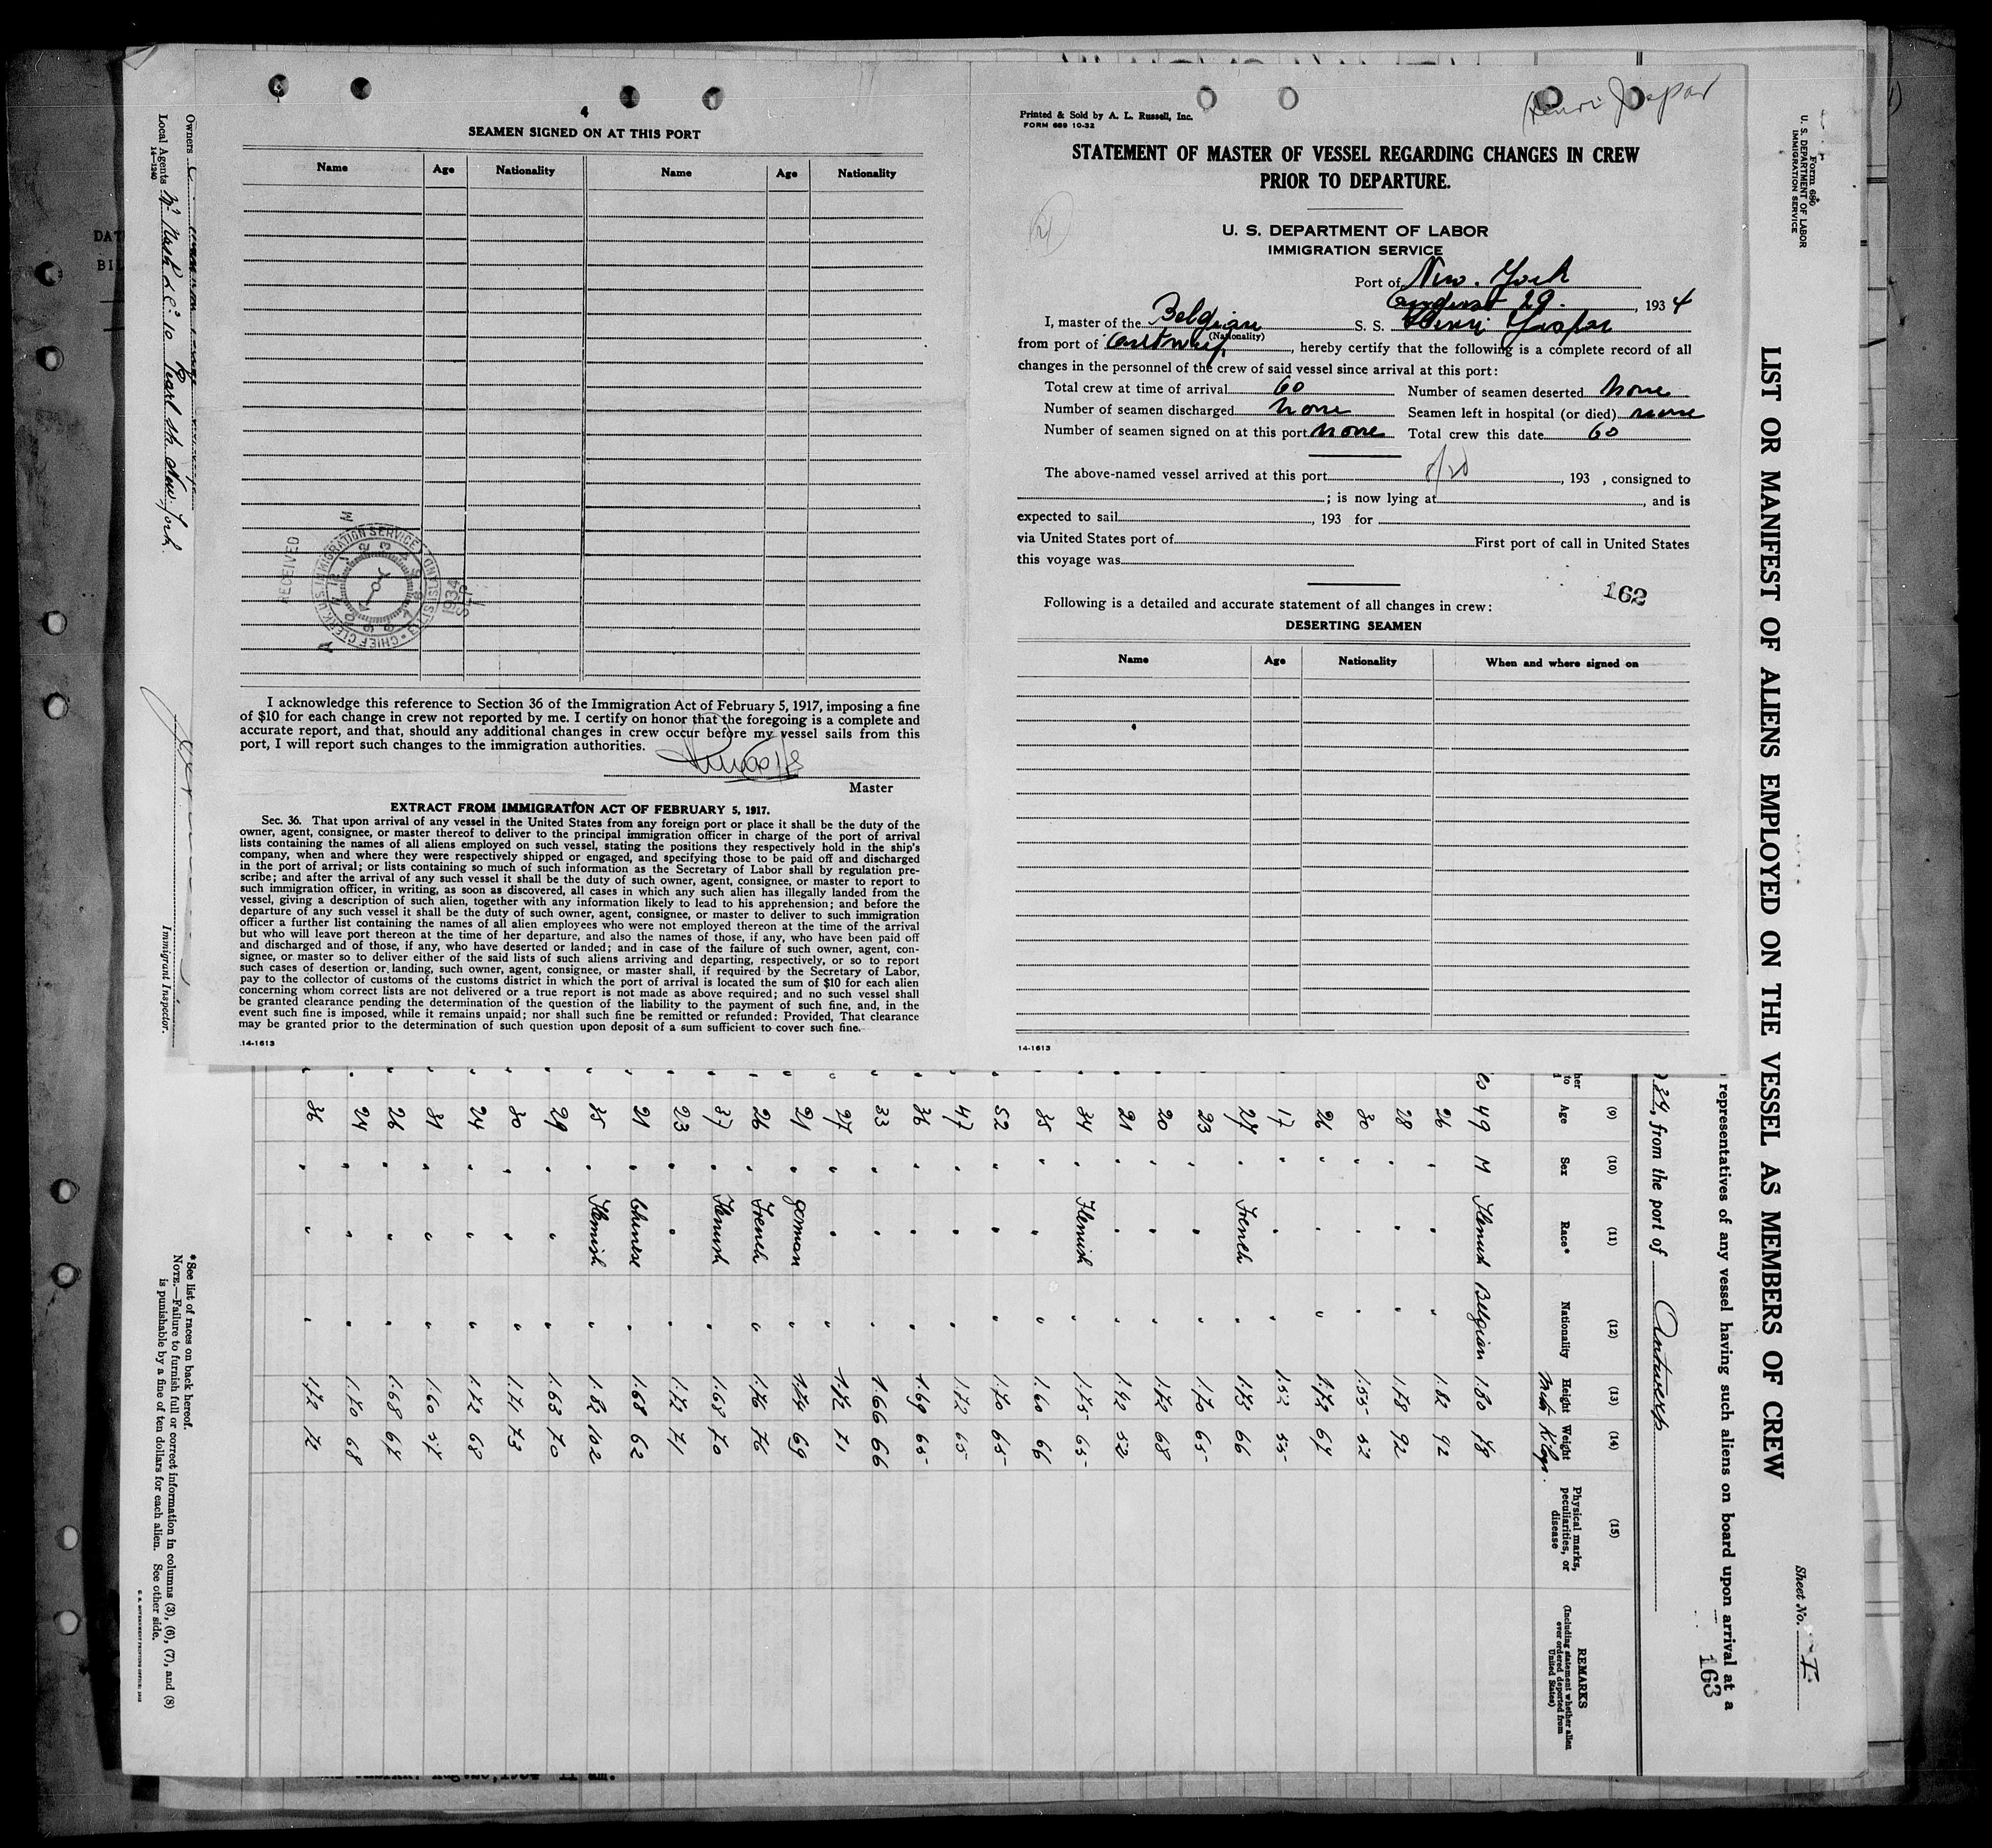 4
SEAMEN SIGNED ON AT THIS PORT
Name Age Nationality Name Age Nationality
RECEIVED
CHIEF CLERK U.S. IMMIGRATION SERVICE
1934
SEP
I acknowledge this reference to Section 36 of the Immigration Act of February 5, 1917, imposing a fine
of $10 for each change in crew not reported by me. I certify on honor that the foregoing is a complete and
accurate report, and that, should any additional changes in crew occur before my vessel sails from this
port, I will report such changes to the immigration authorities.
Master
EXTRACT FROM IMMIGRATION ACT OF FEBRUARY 5, 1917.
Sec. 36. That upon arrival of any vessel in the United States from any foreign port or place it shall be the duty of the
owner, agent, consignee, or master thereof to deliver to the principal immigration officer in charge of the port of arrival
lists containing the names of all aliens employed on such vessel, stating the positions they respectively hold in the ship's
company, when and where they were respectively shipped or engaged, and specifying those to be paid off and discharged
in the port of arrival; or lists containing so much of such information as the Secretary of Labor shall by regulation pre-
scribe; and after the arrival of any such vessel it shall be the duty of such owner, agent, consignee, or master to report to
such immigration officer, in writing, as soon as discovered, all cases in which any such alien has illegally landed from the
vessel, giving a description of such alien, together with any information likely to lead to his apprehension; and before the
departure of any such vessel it shall be the duty of such owner, agent, consignee, or master to deliver to such immigration
officer a further list containing the names of all alien employees who were not employed thereon at the time of the arrival
but who will leave port thereon at the time of her departure, and also the names of those, if any, who have been paid off
and discharged and of those, if any, who have deserted or landed; and in case of the failure of such owner, agent, con-
signee, or master so to deliver either of the said lists of such aliens arriving and departing, respectively, or so to report
such cases of desertion or landing, such owner, agent, consignee, or master shall, if required by the Secretary of Labor,
pay to the collector of customs of the customs district in which the port of arrival is located the sum of $10 for each alien
concerning whom correct lists are not delivered or a true report is not made as above required; and no such vessel shall
be granted clearance pending the determination of the question of the liability to the payment of such fine, and, in the
event such fine is imposed, while it remains unpaid; nor shall such fine be remitted or refunded: Provided, That clearance
may be granted prior to the determination of such question upon deposit of a sum sufficient to cover such fine.
14-1613
Henri Jaspar
Printed & Sold by A. L. Russell, Inc.
FORM 689 10-32
STATEMENT OF MASTER OF VESSEL REGARDING CHANGES IN CREW
PRIOR TO DEPARTURE.
U. S. DEPARTMENT OF LABOR
IMMIGRATION SERVICE
Port of New York
August 29. , 1934
I, master of the Belgian S. S. Henri Jaspar
(Nationality)
from port of Antwerp, hereby certify that the following is a complete record of all
changes in the personnel of the crew of said vessel since arrival at this port:
Total crew at time of arrival 60 Number of seamen deserted none
Number of seamen discharged none Seamen left in hospital (or died) none
Number of seamen signed on at this port none Total crew this date 60
The above-named vessel arrived at this port , 193 , consigned to
; is now lying at , and is
expected to sail , 193 for
via United States port of First port of call in United States
this voyage was
162
Following is a detailed and accurate statement of all changes in crew:
DESERTING SEAMEN
Name Age Nationality When and where signed on
14-1613
Form 680
U. S. DEPARTMENT OF LABOR
IMMIGRATION SERVICE
Sheet No. I
LIST OR MANIFEST OF ALIENS EMPLOYED ON THE VESSEL AS MEMBERS OF CREW
representatives of any vessel having such aliens on board upon arrival at a
163
34, from the port of Antwerp
(9) (10) (11) (12) (13) (14) (15)
Age Sex Race* Nationality Height Weight Physical marks, peculiarities, or disease
REMARKS
(Including statement whether alien
ever ordered deported from
United States)
49 M Flemish Belgian 1.80 78
26 " " " 1.82 92
28 " " " 1.78 92
30 " " " 1.55 52
26 " " " 1.72 67
17 " " " 1.52 55
27 " French " 1.73 66
23 " " " 1.70 65
20 " " " 1.72 68
21 " " " 1.42 52
34 " Flemish " 1.75 65
35 " " " 1.60 66
52 " " " 1.70 65
47 " " " 1.72 65
36 " " " 1.69 65
33 " " " 1.66 66
27 " " " 1.72 71
21 " German " 1.74 69
26 " French " 1.76 76
37 " Flemish " 1.68 70
23 " " " 1.72 71
21 " Chinese " 1.68 62
35 " Flemish " 1.82 102
29 " " " 1.63 70
30 " " " 1.71 73
24 " " " 1.72 68
31 " " " 1.60 57
26 " " " 1.68 67
24 " " " 1.70 68
36 " " " 1.72 72
Owners
Local Agents
14-1240
10 Pearl str. New York
Immigrant Inspector.
*See list of races on back hereof.
NOTE.—Failure to furnish full or correct information in columns (3), (6), (7), and (8)
is punishable by a fine of ten dollars for each alien. See other side.